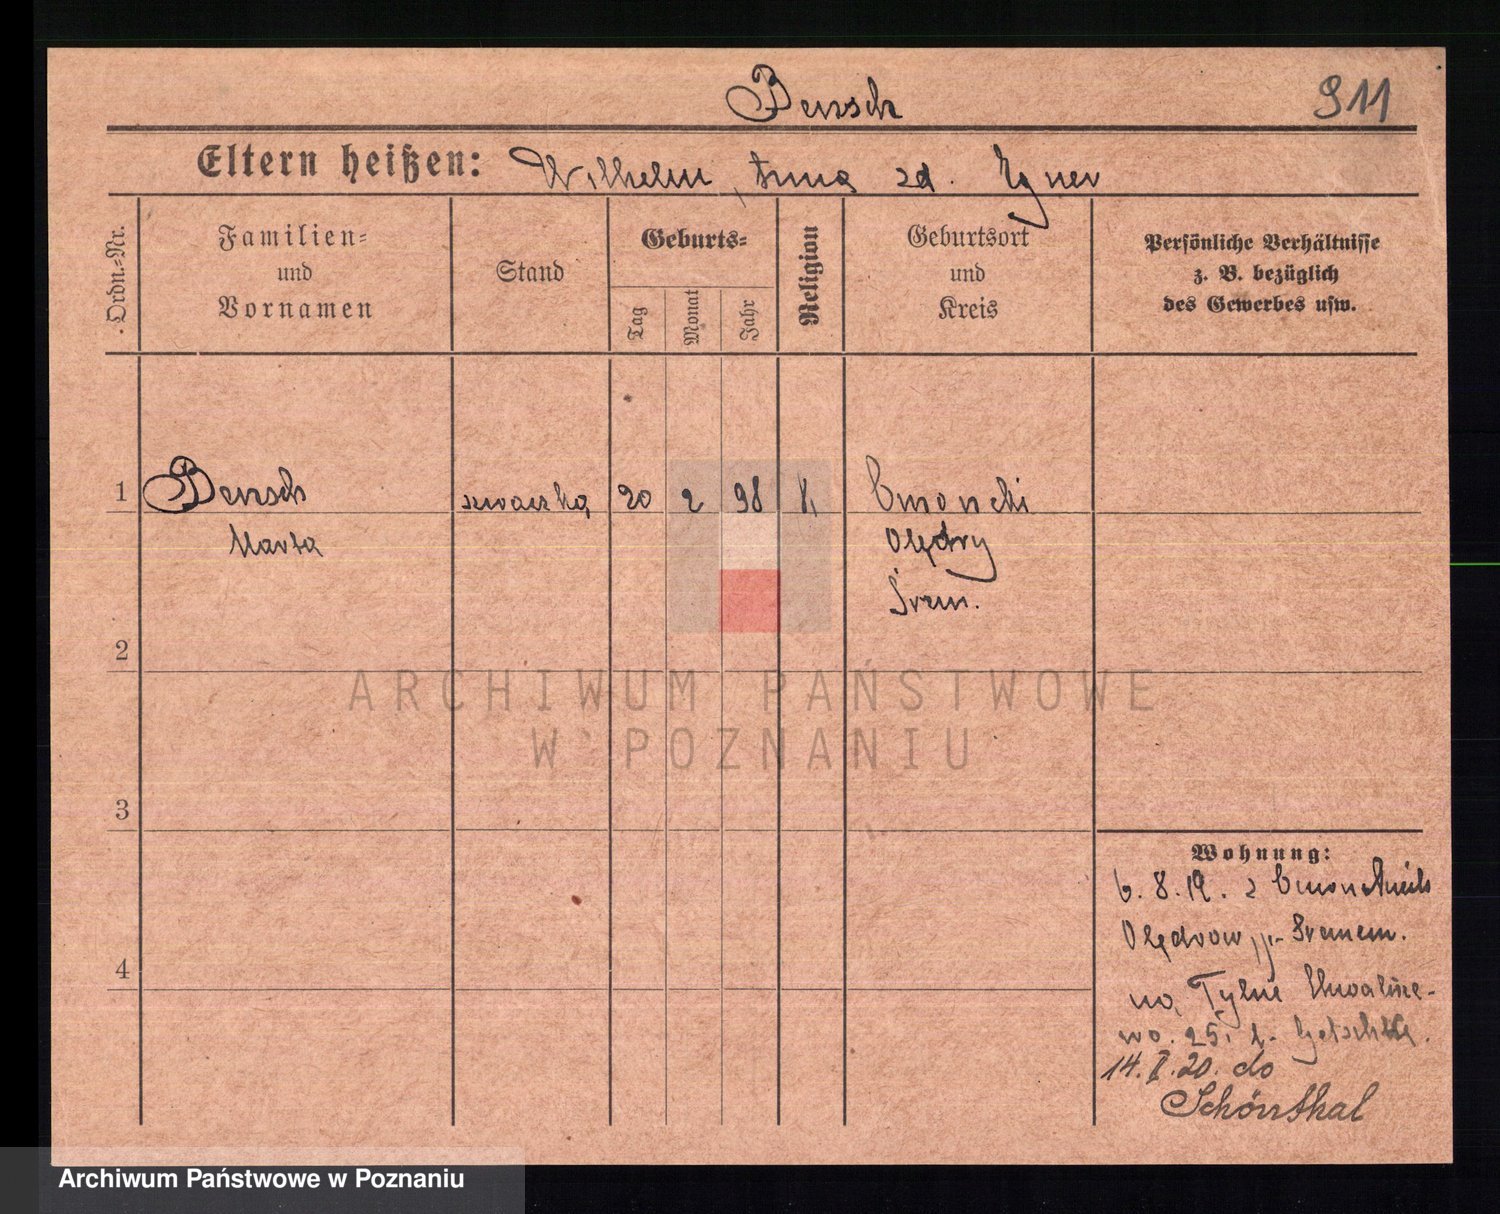 Bensch
911
Eltern heißen: Wilhelm, Anna zd. Egner
Ordn.-Nr.
Familien-
und
Vornamen
Stand
Geburts-
Tag
Monat
Jahr
Religion
Geburtsort
und
Kreis
Persönliche Verhältnisse
z. B. bezüglich
des Gewerbes usw.
1
Bensch
Marta
szwaczka
20
2
98
k.
Olędry
Śrem.
2
ARCHIWUM PAŃSTWOWE
W POZNANIU
3
Wohnung:
6. 8. 19. z
Olędrow Śremem.
4
na Tylne Chwalisze-
wo. 25.
14. II. 20. do
Schönthal
Archiwum Państwowe w Poznaniu